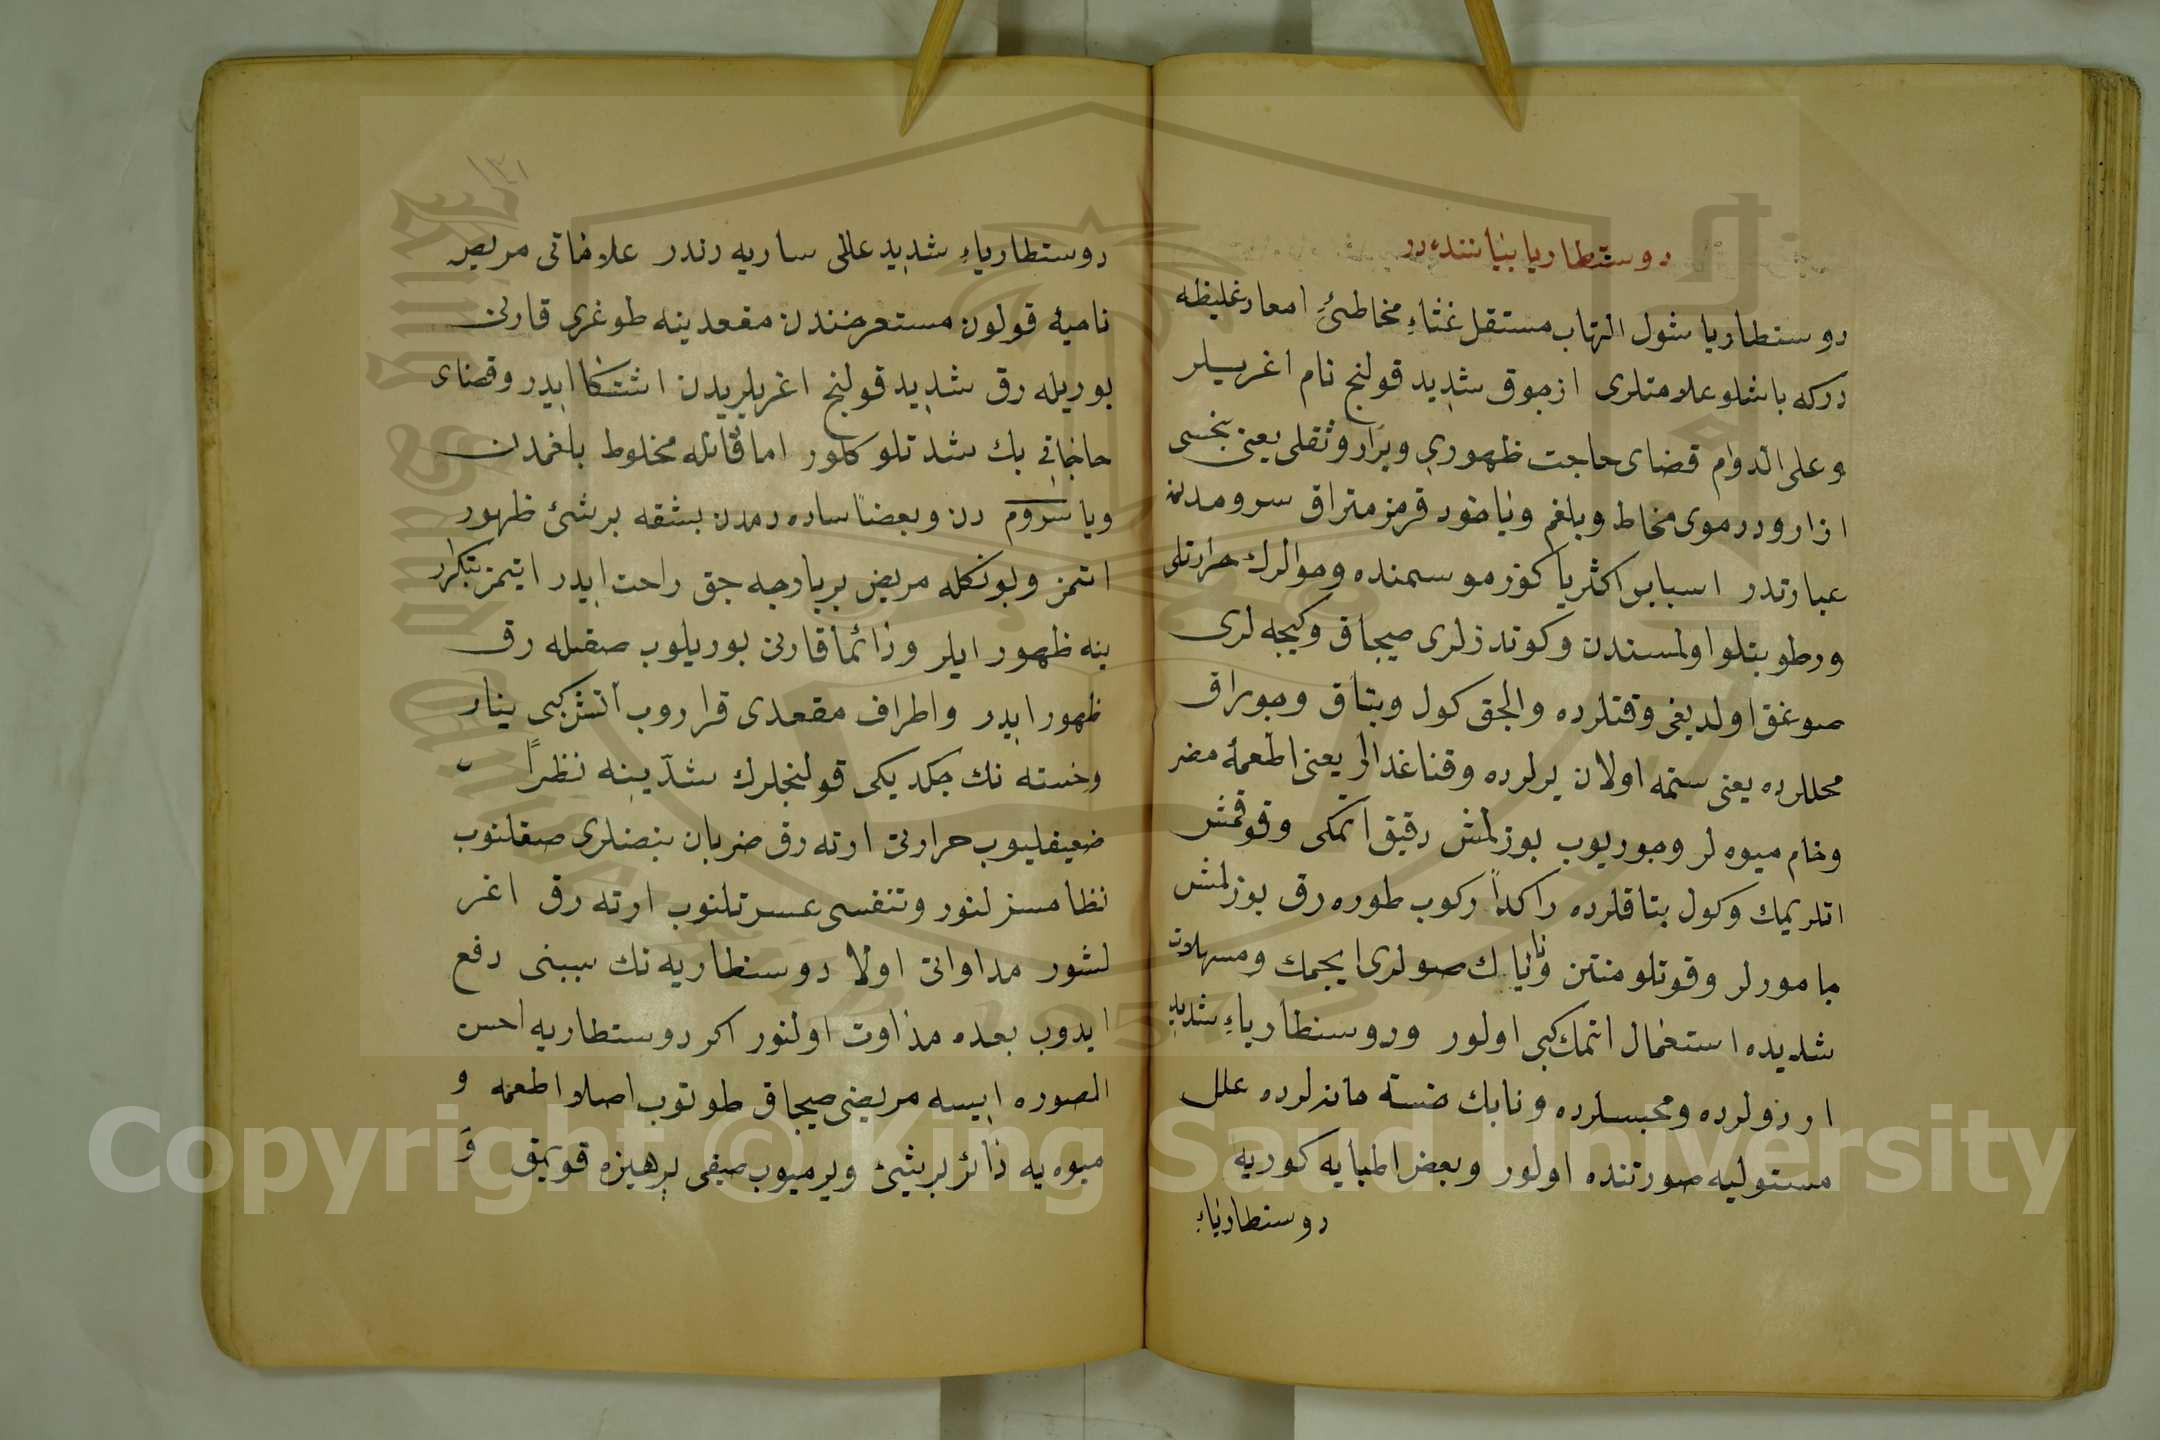 دوستطاريا بياننده در
دوستطاريا شول التهاب مستقل غثاءِ مخاطئ امعاء غليظه
دركه باشلو علامتلرى ازجوق شديد قولنج نام اغريلر
وعلى الدوام قضاى حاجت ظهورى وبراز وثقلى يعنى نجسى
ازارو در موى مخاط وبلغم وياخود قرمزمتراق سرومدن
عبارتدر اسبابى اكثريا كوز موسمنده وهوالرك حرارتلى
ورطوبتلو اولمسندن وكوندزلرى صيجاق وكيجه لرى
صوغق اولديغى وقتلرده والجق كول وبتاق وجوراق
محللرده يعنى ستمه اولان يرلرده وفنا غدالر يعنى اطعمهٔ مضر
وخام ميوه لر وجوريوب بوزلمش دقيق اتمكى وقوقمش
اتلر يمك وكول بتاقلرده راكداً ركوب طوره رق بوزلمش
يامورلر وقوتلو منتن وناپاك صولرى ايجمك ومسهلات
شديده استعمال اتمك كبى اولور ودوسنطارياءِ شديد
اردولرده ومحبسلرده وناپاك خسته خانه لرده علل
مستوليه صورتنده اولور وبعض اطبايه كوريه
دوسنطارياءِ
١٢١
دوستطارياءِ شديد علل ساريه دندر علاماتى مريض
ناميه قولون مستعرضندن مقعدينه طوغرى قارن
بوريله رق شديد قولنج اغريلريدن اشتكا ايدر وقضاى
حاجاتى بك شدتلو كلور اما قانله مخلوط بلغمدن
ويا سروم دن وبعضاً ساده دمدن بشقه برشئ ظهور
اتمز وبونكله مريض بربارجه جق راحت ايدر ايتمز تتكرار
ينه ظهور ايلر ودائما قارن بوريلوب صقيله رق
ظهور ايدر واطراف مقعدى قراروب آتش كبى ينار
وخسته نك جكديكى قولنجلرك شدّتنه نظراً
ضعيفليوب حرارتى ارته رق ضربان نبضلرى صقلنوب
نظامسز لنور وتنفسى عسرتلنوب ارته رق اغر
لشور مداواتى اولا دوسنطاريه نك سببنى دفع
ايدوب بعده مداوت اولنور اكر دوستطاريه احسن
الصوره ايسه مريضى صيجاق طوتوب اصلا اطعمه و
ميوه يه دائر برشئ ويرميوب صيقى پرهيزه قويمق و